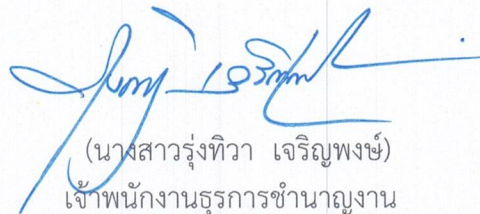 (นางสาวรุ่งทิวา เจริญพงษ์)
เจ้าพนักงานธุรการชำนาญงาน